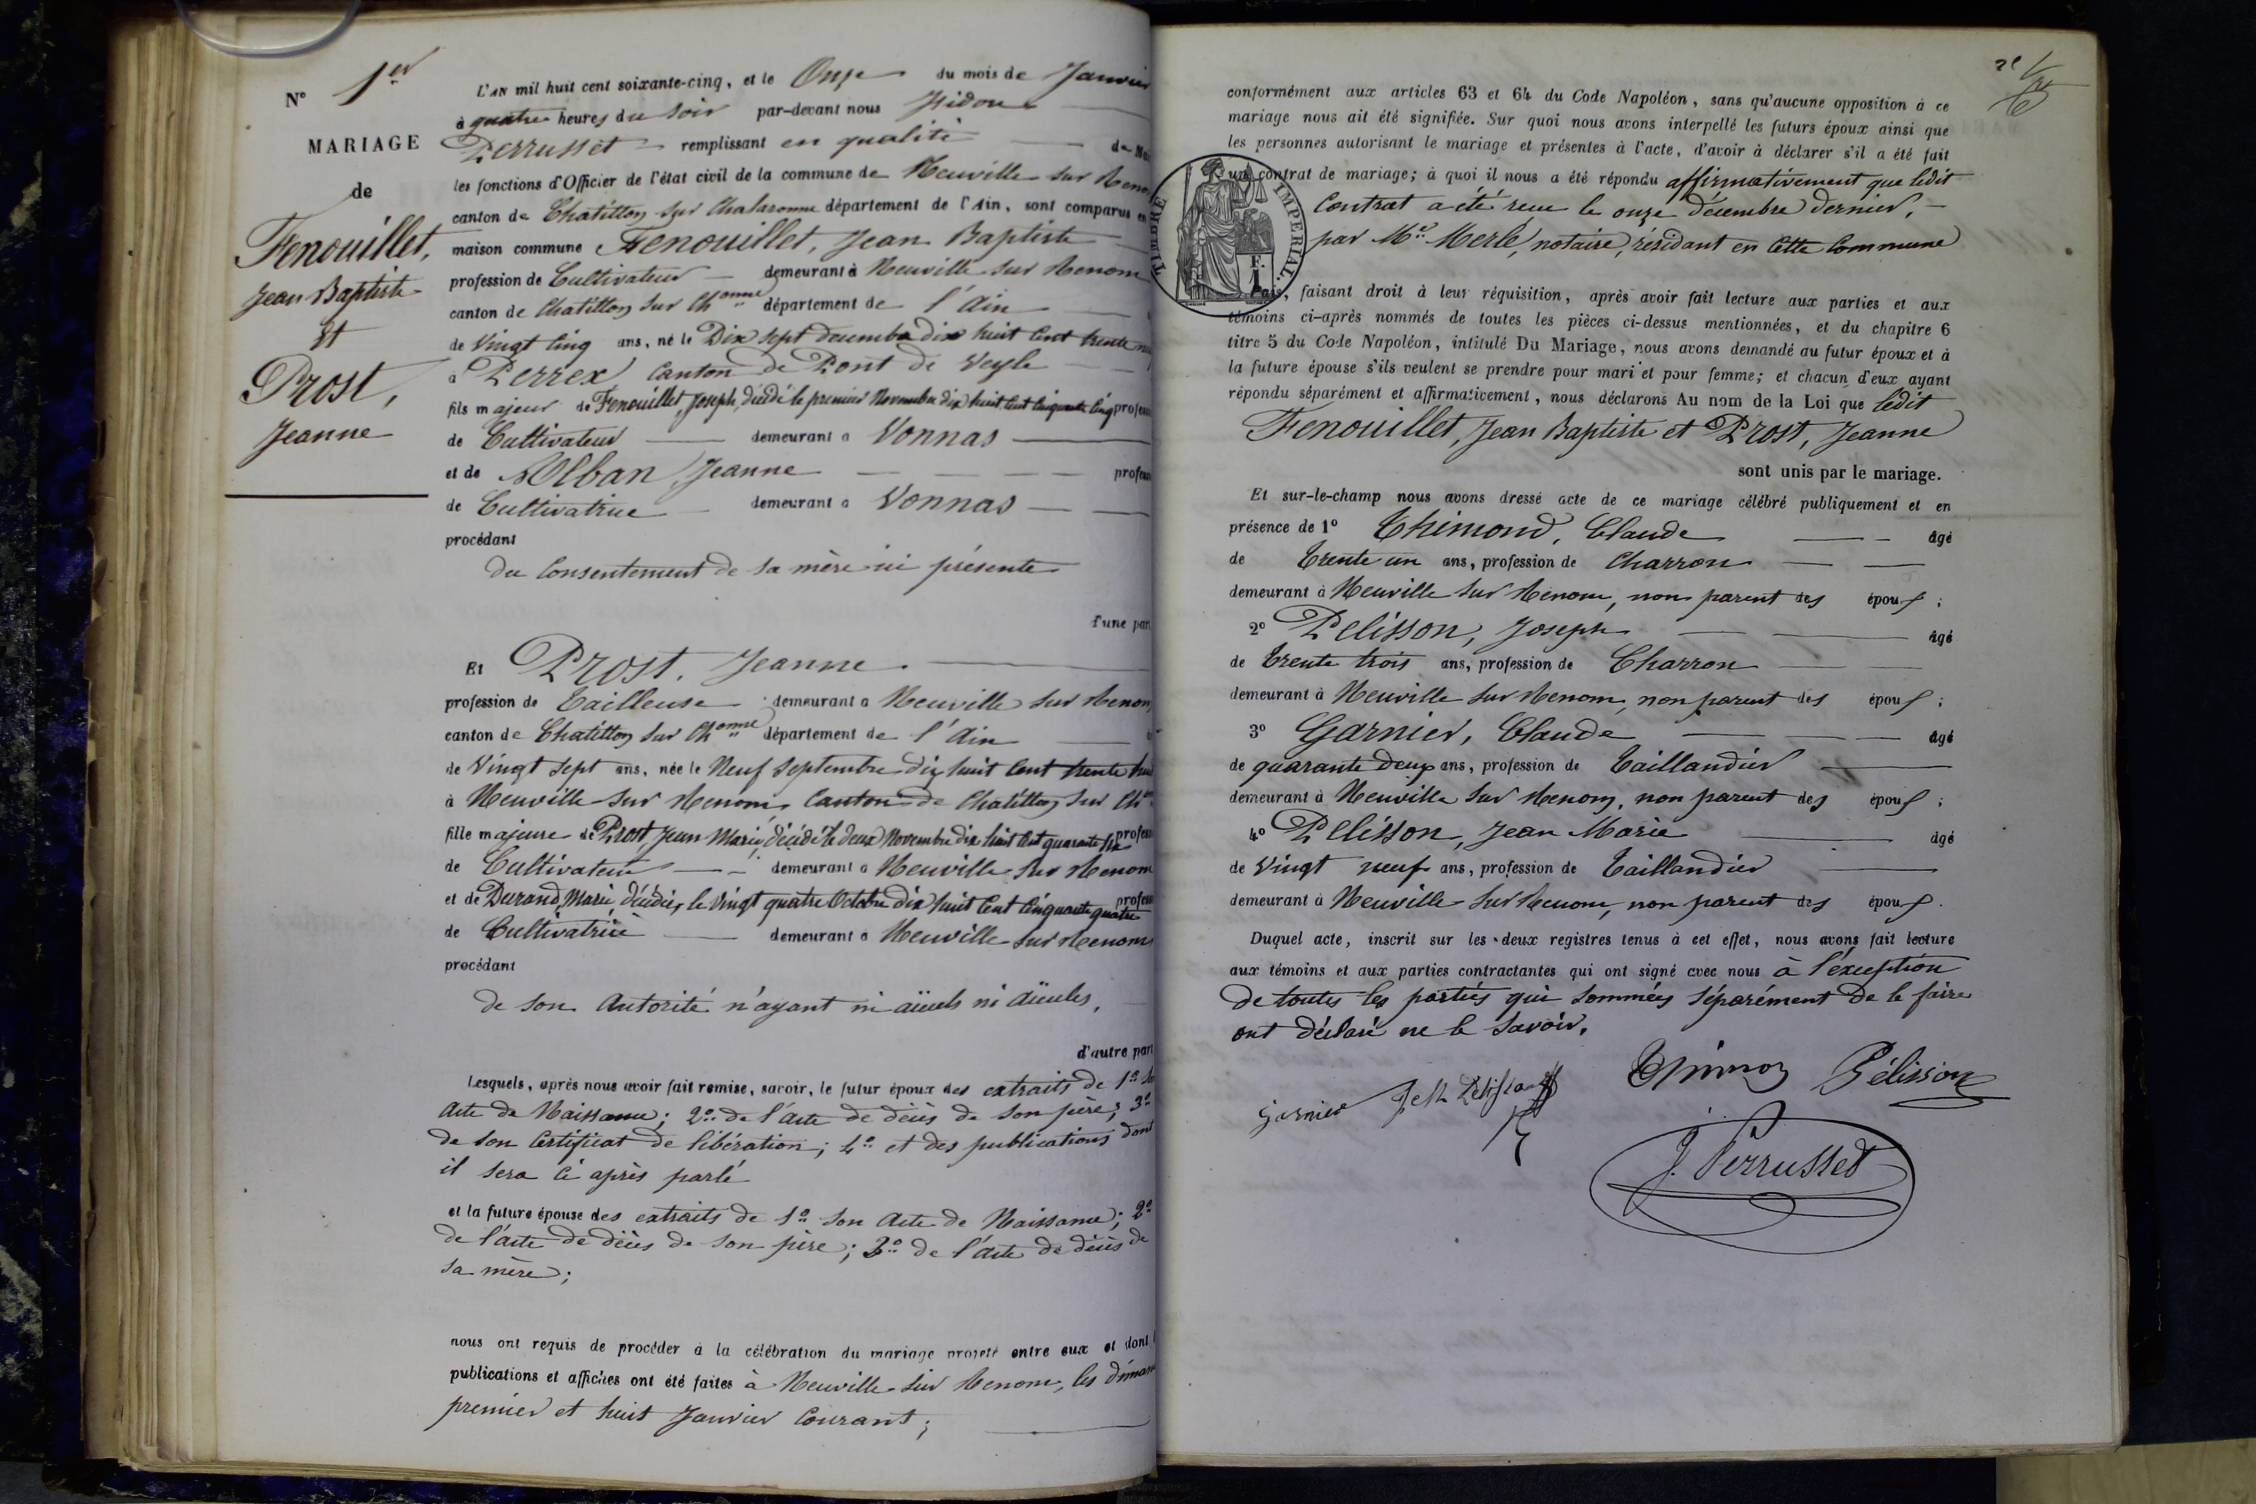 N° 1er
MARIAGE
de
Fenouillet,
Jean Baptiste
Et
Prost,
Jeanne
L'AN mil huit cent soixante-cinq, et le Onze du mois de Janvier
à quatre heures du soir par-devant nous Isidore
Perrusset remplissant en qualité de
les fonctions d'Officier de l'état civil de la commune de Neuville sur Renom
canton de Chatillon sur Chalaronne département de l'Ain, sont comparus en
maison commune Fenouillet, Jean Baptiste
profession de Cultivateur demeurant à Neuville sur Renom
canton de Chatillon sur Chonne département de l'Ain
de Vingt cinq ans, né le Dix sept decembre dix huit cent trente
à Perrex Canton de Pont de Veyle
fils majeur de Fenouillet, Joseph, décédé le premier Novembre dix huit cent cinquante cinq
de Cultivateur demeurant à Vonnas
et de Alban, Jeanne
de Cultivatrice demeurant à Vonnas
procédant
du Consentement de sa mère ici présente
d'une part
Et Prost, Jeanne
profession de Tailleuse demeurant à Neuville sur Renom
canton de Chatillon sur Chonne département de l'Ain
de Vingt sept ans, née le Neuf septembre dix huit cent trente
à Neuville sur Renom, Canton de Chatillon sur Chonne
fille majeure de Prost, Jean Marie, décédé le deux Novembre dix huit cent quarante six
de Cultivateur demeurant à Neuville sur Renom
et de Durand, Marie, décédée, le vingt quatre Octobre dix huit cent cinquante quatre
de Cultivatrice demeurant à Neuville sur Renom
procédant
de son Autorité n'ayant ni aïeuls ni aïeules,
d'autre part
Lesquels, après nous avoir fait remise, savoir, le futur époux des extraits de 1° son
acte de Naissance; 2° de l'acte de décès de son père; 3°
de son Certificat de libération; 4° et des publications dont
il sera ci après parlé
et la future épouse des extraits de 1° son acte de Naissance; 2°
de l'acte de décès de son père; 3° de l'acte de décès de
sa mère;
nous ont requis de procéder à la célébration du mariage projeté entre eux et dont
publications et affiches ont été faites à Neuville sur Renom, les
premier et huit Janvier Courant;
conformément aux articles 63 et 64 du Code Napoléon, sans qu'aucune opposition à ce
mariage nous ait été signifiée. Sur quoi nous avons interpellé les futurs époux ainsi que
les personnes autorisant le mariage et présentes à l'acte, d'avoir à déclarer s'il a été fait
un contrat de mariage; à quoi il nous a été répondu affirmativement que ledit
Contrat a été reçu le onze décembre dernier,
par Me Merle, notaire, résidant en cette Commune
TIMBRE IMPERIAL. F. 1
Puis, faisant droit à leur réquisition, après avoir fait lecture aux parties et aux
témoins ci-après nommés de toutes les pièces ci-dessus mentionnées, et du chapitre 6
titre 5 du Code Napoléon, intitulé Du Mariage, nous avons demandé au futur époux et à
la future épouse s'ils veulent se prendre pour mari et pour femme; et chacun d'eux ayant
répondu séparément et affirmativement, nous déclarons Au nom de la Loi que ledit
Fenouillet, Jean Baptiste et Prost, Jeanne
sont unis par le mariage.
Et sur-le-champ nous avons dressé acte de ce mariage célébré publiquement et en
présence de 1° Thimond, Claude âgé
de Trente un ans, profession de Charron
demeurant à Neuville sur Renom, non parent des époux;
2° Pelisson, Joseph âgé
de Trente trois ans, profession de Charron
demeurant à Neuville sur Renom, non parent des époux;
3° Garnier, Claude âgé
de quarante deux ans, profession de Taillandier
demeurant à Neuville sur Renom, non parent des époux;
4° Pelisson, Jean Marie âgé
de Vingt neuf ans, profession de Taillandier
demeurant à Neuville sur Renom, non parent des époux.
Duquel acte, inscrit sur les deux registres tenus à cet effet, nous avons fait lecture
aux témoins et aux parties contractantes qui ont signé avec nous à l'exception
de toutes les parties qui sommées séparément de le faire
ont déclaré ne le savoir.
Thimon Pélisson
Garnier
J. Perrusset